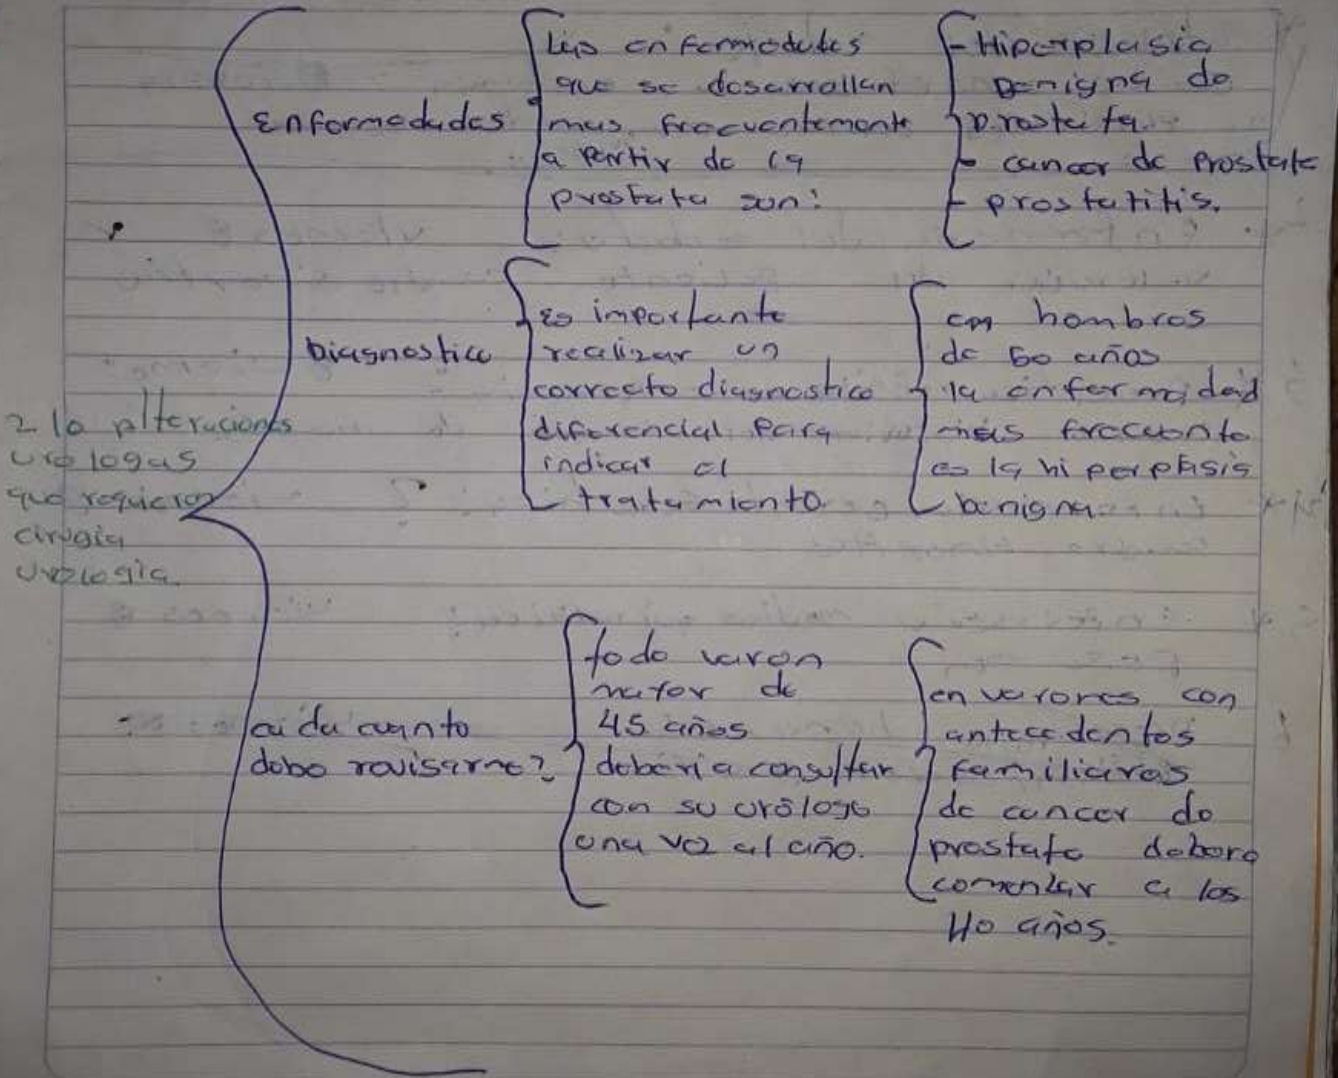 2 la alteraciones
urologas
que requieren
cirugia
urologia.
Enfermedades
Las enfermedades
que se desarrollan
mas frecuentemente
a partir de la
prostata son:
- Hiperplasia
benigna de
prostata.
- cancer de prostata
- prostatitis.
Diagnostico
Es importante
realizar un
correcto diagnostico
diferencial para
indicar el
tratamiento
en hombres
de 60 años
la enfermedad
más frecuente
es la hiperplasis
benigna
cada cuanto
debo revisarme?
todo varon
mayor de
45 años
deberia consultar
con su urólogo
una vez al año.
en varones con
antecedentes
familiares
de cancer de
prostata debera
comenzar a los
40 años.